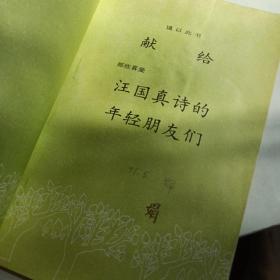 谨以此书
献给
那些喜爱
汪国真诗的
年轻朋友们